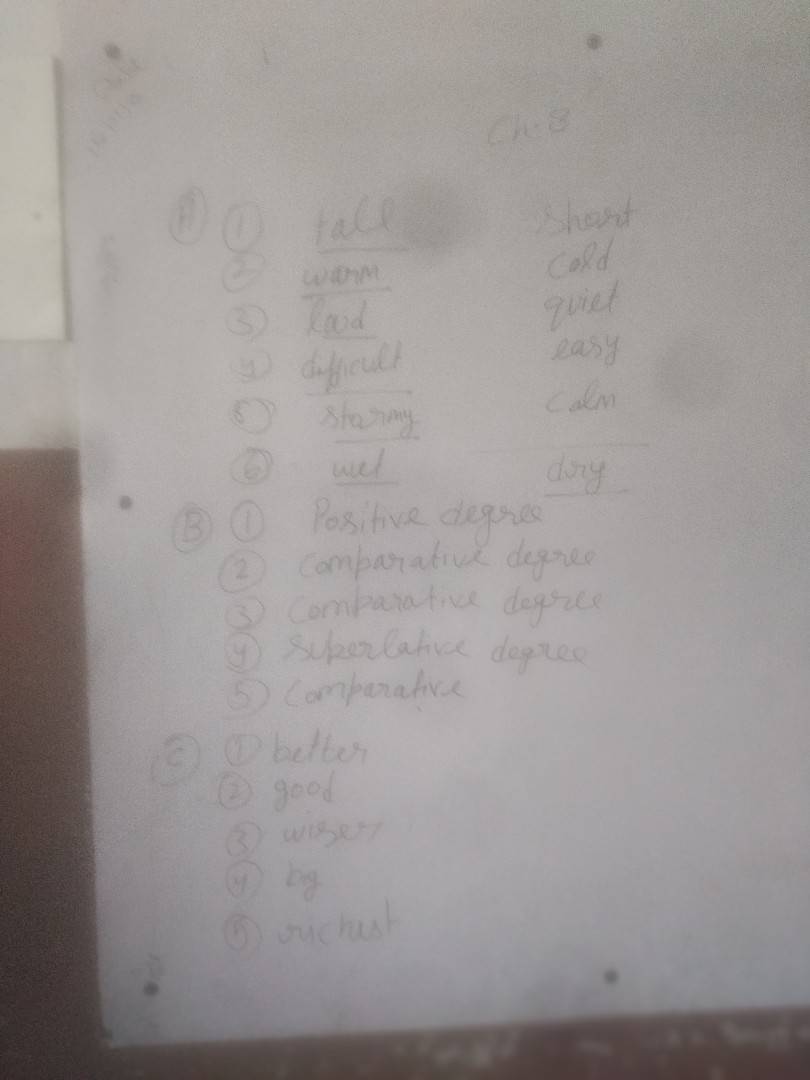 Ch-8
A 1 tall short
2 warm cold
3 loud quiet
4 difficult easy
5 stormy calm
6 wet dry
B 1 Positive degree
2 Comparative degree
3 Comparative degree
4 Superlative degree
5 Comparative
C 1 better
2 good
3 wiser
4 big
5 richest